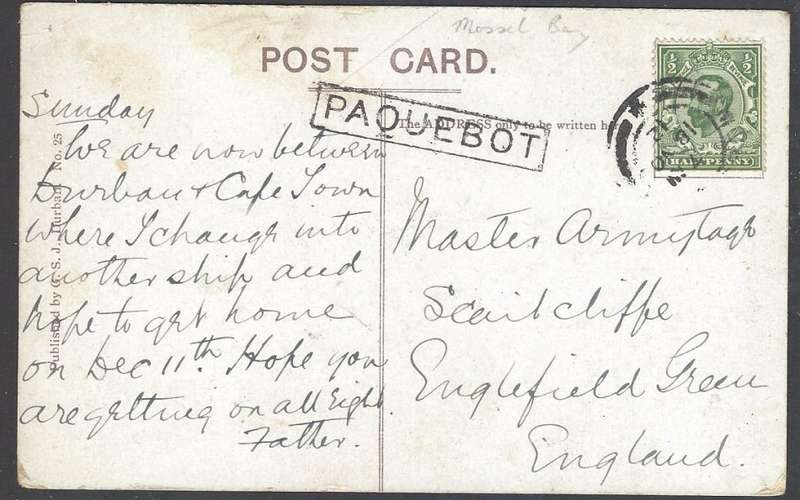 Mossel Bay
POST CARD.
PAQUEBOT
The ADDRESS only to be written here
½ ½
HALFPENNY
Sunday
We are now between
Durban & Cape Town
where I change into
another ship and
hope to get home
on Dec 11th. Hope you
are getting on all right
Father.
Master Armytage
Scaitcliffe
Englefield Green
England.
Published by G. S. J., Durban. No. 25